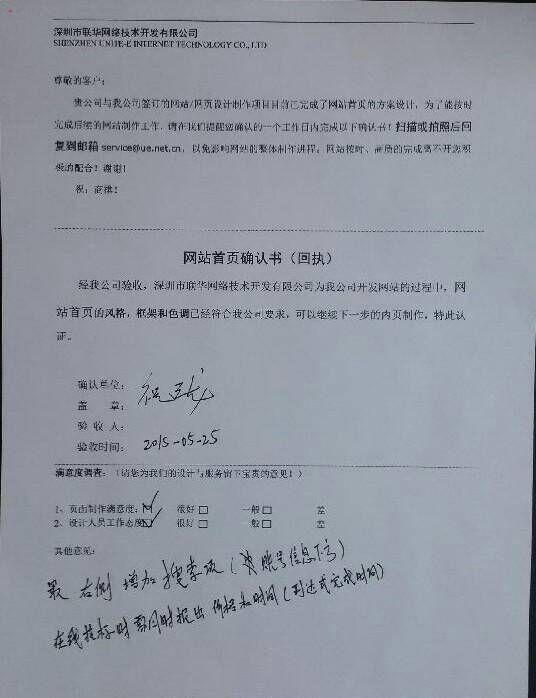 深圳市联华网络技术开发有限公司
SHENZHEN UNITE-E INTERNET TECHNOLOGY CO., LTD
尊敬的客户：
贵公司与我公司签订的网站/网页设计制作项目目前已完成了网站首页的方案设计，为了能按时
完成后续的网站制作工作，请在我们提醒您确认的一个工作日内完成以下确认书！扫描或拍照后回
复到邮箱 service@ue.net.cn，以免影响网站的整体制作进程，网站按时、高质的完成离不开您积
极的配合！谢谢！
祝：商祺！
网站首页确认书（回执）
经我公司验收，深圳市联华网络技术开发有限公司为我公司开发网站的过程中，网
站首页的风格，框架和色调已经符合我公司要求，可以继续下一步的内页制作，特此认
证。
确认单位：
盖 章：
验 收 人：
验收时间： 2015-05-25
满意度调查：（请您为我们的设计与服务留下宝贵的意见！）
1、页面制作满意度： 很好 □ 一般 □ 差
2、设计人员工作态度 很好 □ 一般 □ 差
其他意见：
最右侧增加搜索项（ 账号信息下方）
在线投标时要同时报出价格和时间（到达或完成时间）